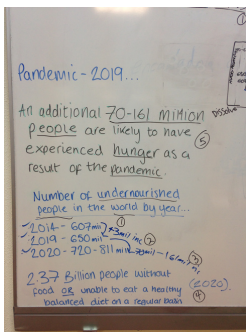 Pandemic - 2019...
An additional 70-161 million
people are likely to have
experienced hunger as a ⑤
result of the pandemic.
Number of undernourished
people in the world by year...
2014 - 607mil ①
2019 - 650mil +43mil inc ②
2020 - 720-811mil - 161mil inc ③
2.37 Billion people without (2020).
food OR unable to eat a healthy ④
balanced diet on a regular basis
Dissolve